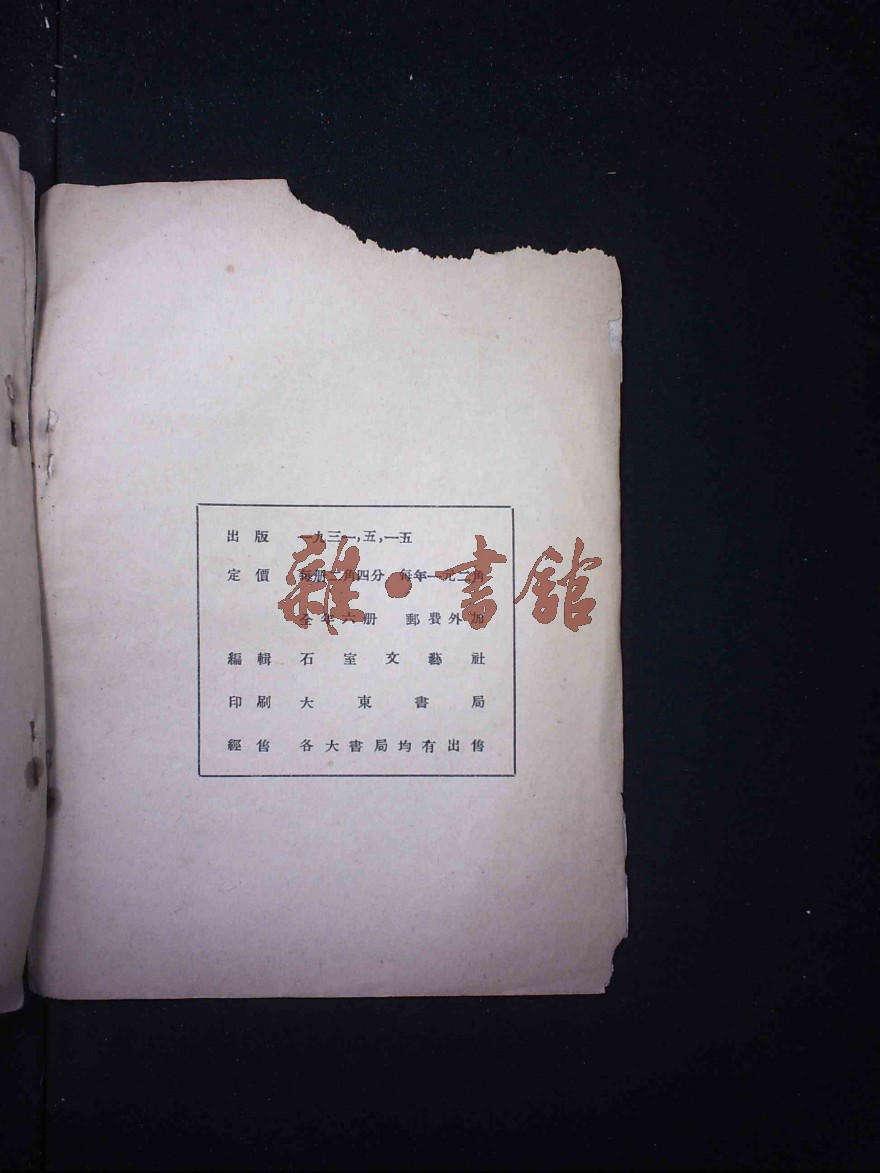 出版 一九三一,五,一五
定價 每册二角四分 每年一元二角
全年六册 郵費外加
編輯 石室文藝社
印刷 大東書局
經售 各大書局均有出售
雜·書館